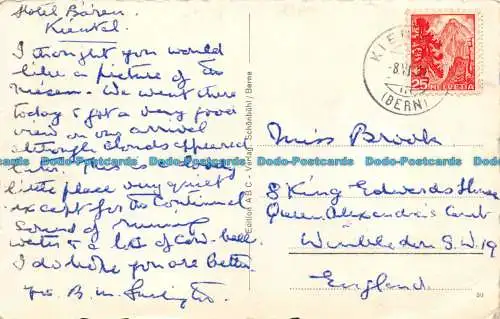 Hotel Bären.
Kiental.
I thought you would
like a picture of the
Niesen. We went there
today & got a very good
view on my arrival
although clouds appeared
later. This is a lovely
little place very quiet
except for the continual
sound of running
water & a lot of cow-bells.
I do hope you are better.
yrs. B. M.
Edition A B C - Verlag Schönbühl / Berne
KIEN
-8.VI
(BERN)
25
HELVETIA
Miss Brook
8 King Edwards House
Queen Alexandra's Court
Wimbledon S.W.19
England.
50
Dodo-Postcards Dodo-Postcards Dodo-Postcards Dodo-Postcards Dodo-Postcards